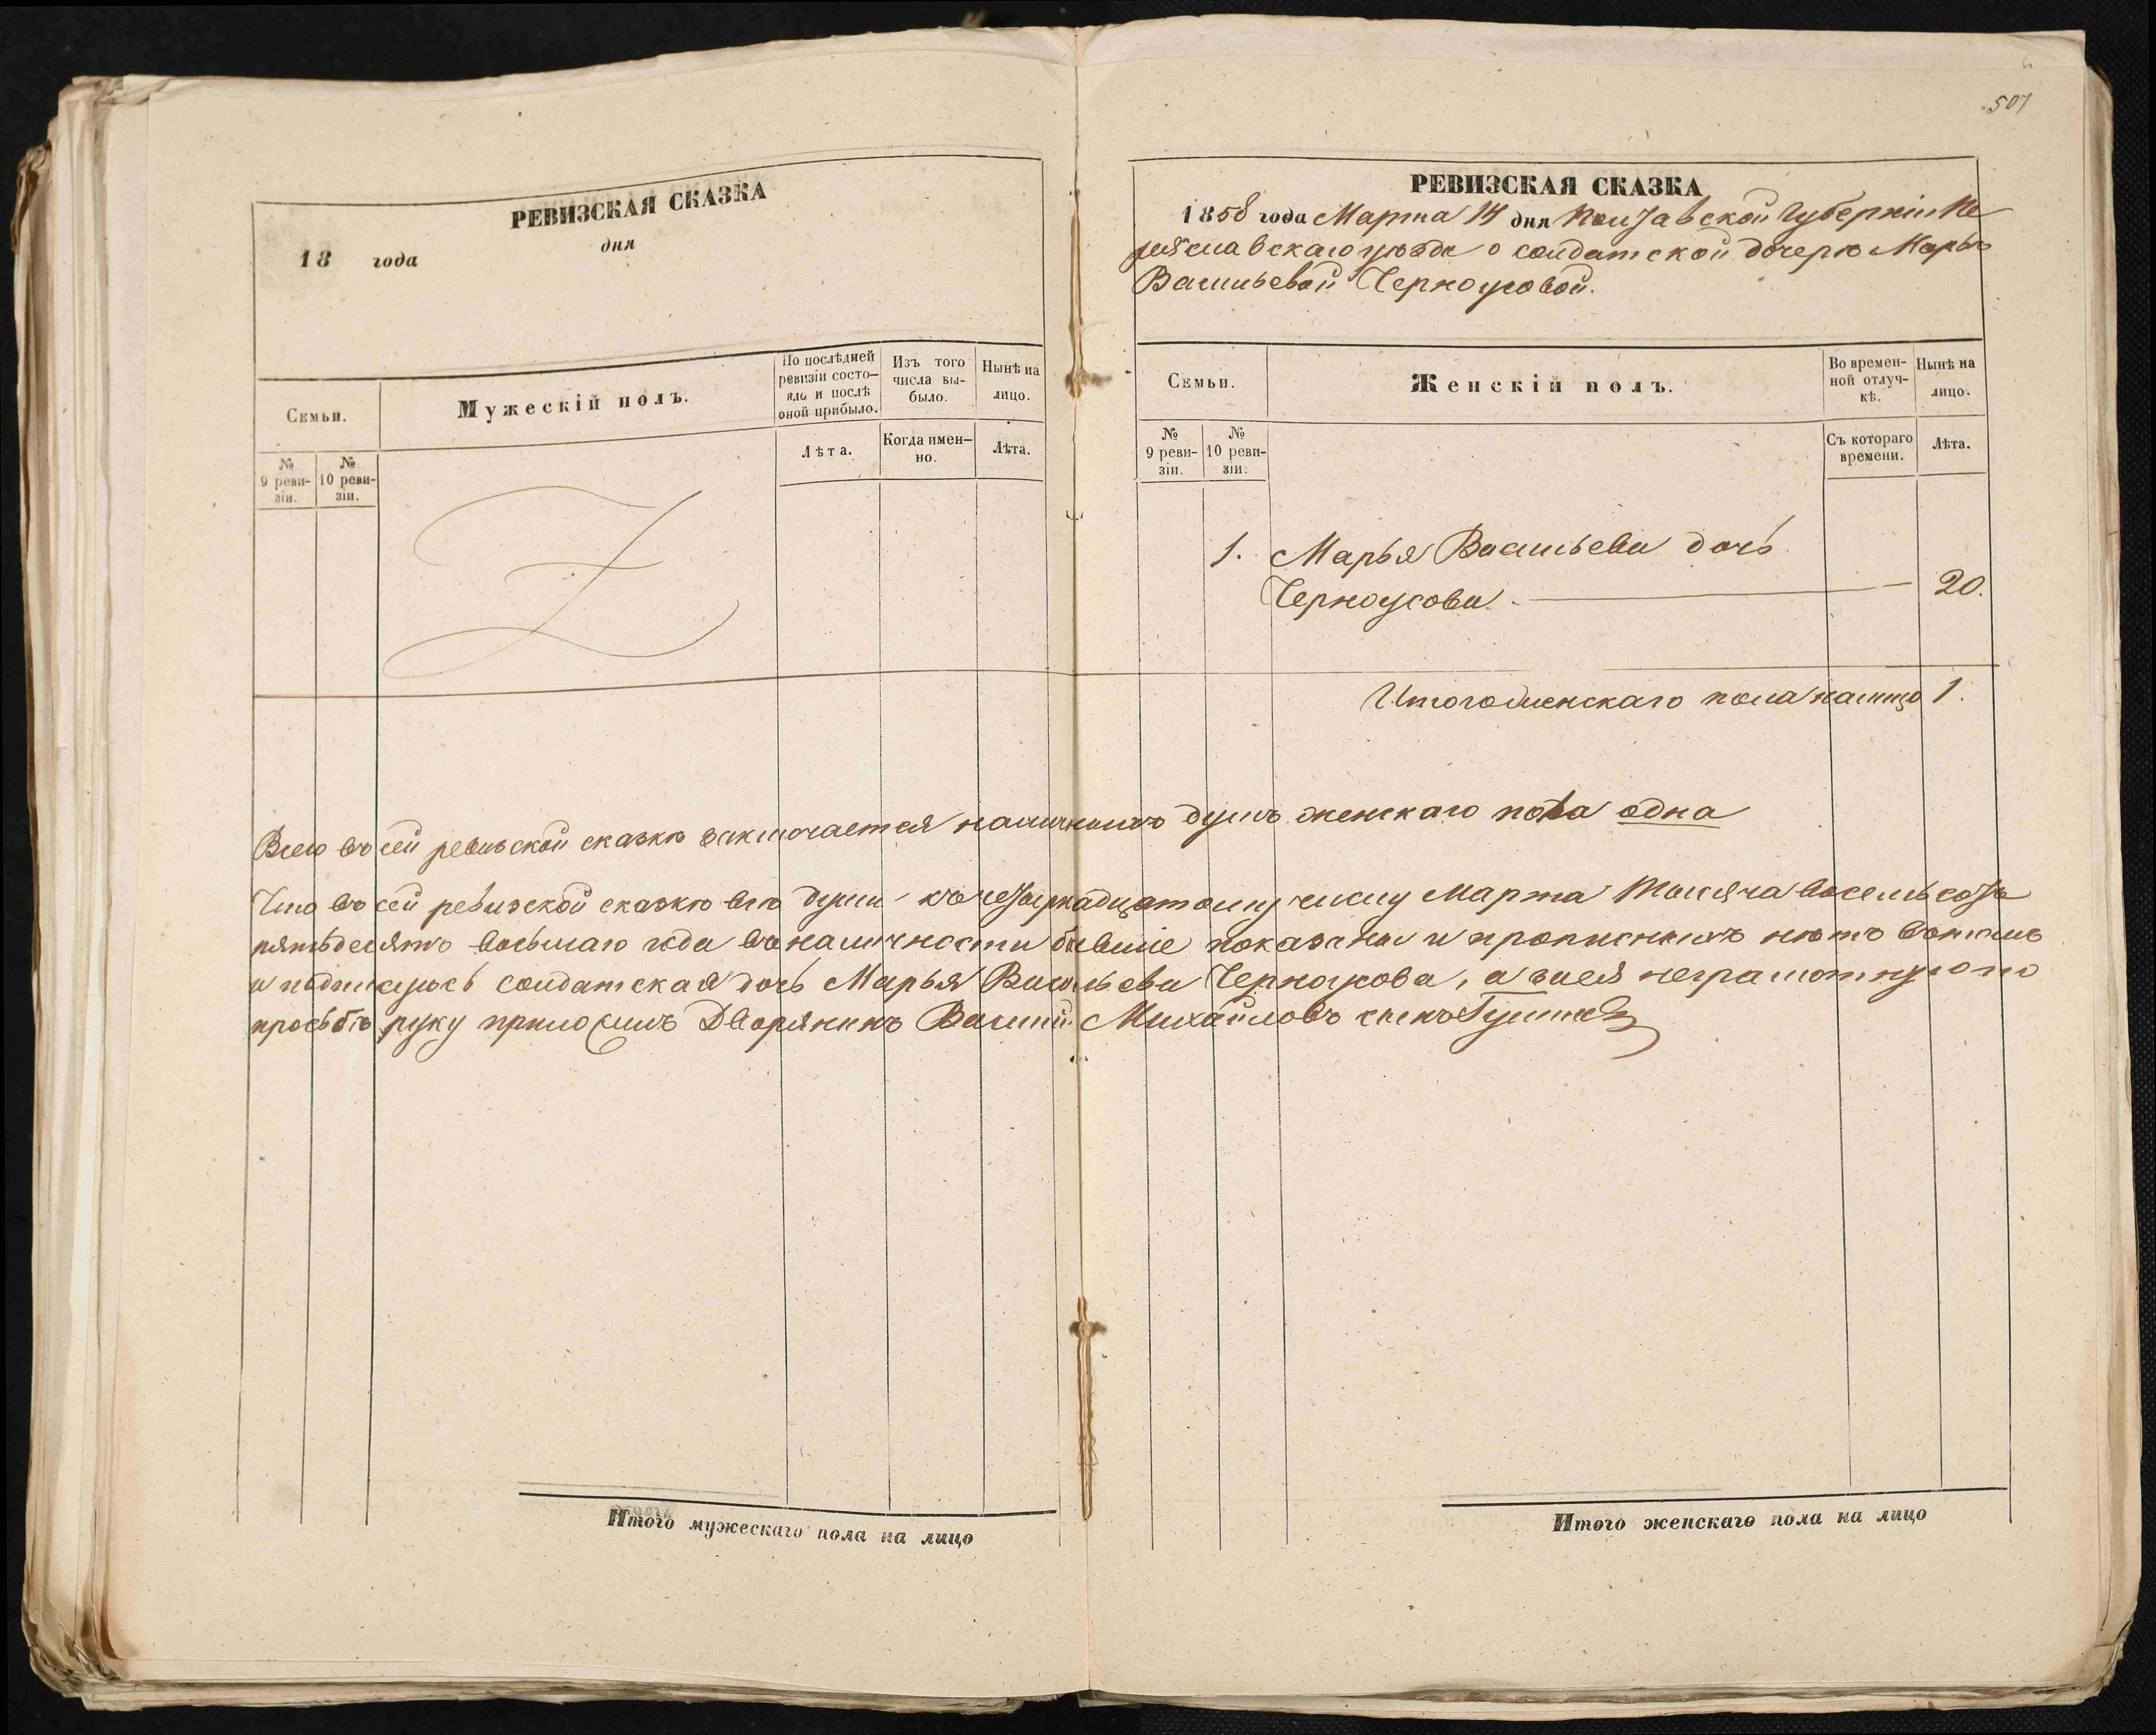 507
РЕВИЗСКАЯ СКАЗКА
18 года дня
Семьи.
Мужескій полъ.
По послѣдней ревизіи состояло и послѣ оной прибыло.
Изъ того числа выбыло.
Нынѣ на лицо.
Лѣта.
Когда именно.
Лѣта.
№ 9 ревизіи.
№ 10 ревизіи.
РЕВИЗСКАЯ СКАЗКА
1858 года Марта 14 дня Полтавской Губерніи Пе
реяславскаго уѣзда о солдатской дочерѣ Марьѣ
Васильевой Черноусовой.
Семьи.
Женскій полъ.
Во временной отлучкѣ.
Нынѣ на лицо.
№ 9 ревизіи.
№ 10 ревизіи.
Съ котораго времени.
Лѣта.
1. Марья Васильева дочь
Черноусова. — 20.
Итого женскаго пола налицо 1.
Всего въ сей ревизской сказкѣ заключается наличныхъ душъ женскаго пола одна
Что въ сей ревизской сказкѣ всѣ души къ четырнадцатому числу Марта тысяча восемьсотъ
пятьдесятъ восьмаго года въ наличности бывшіе показаны и прописныхъ нѣтъ вотомъ
и подписуюсь солдатская дочь Марья Васильева Черноусова, а за нея неграмотную по
прозьбѣ руку приложилъ Дворянинъ Василий Михайловъ сынъ
Итого мужескаго пола на лицо
Итого женскаго пола на лицо